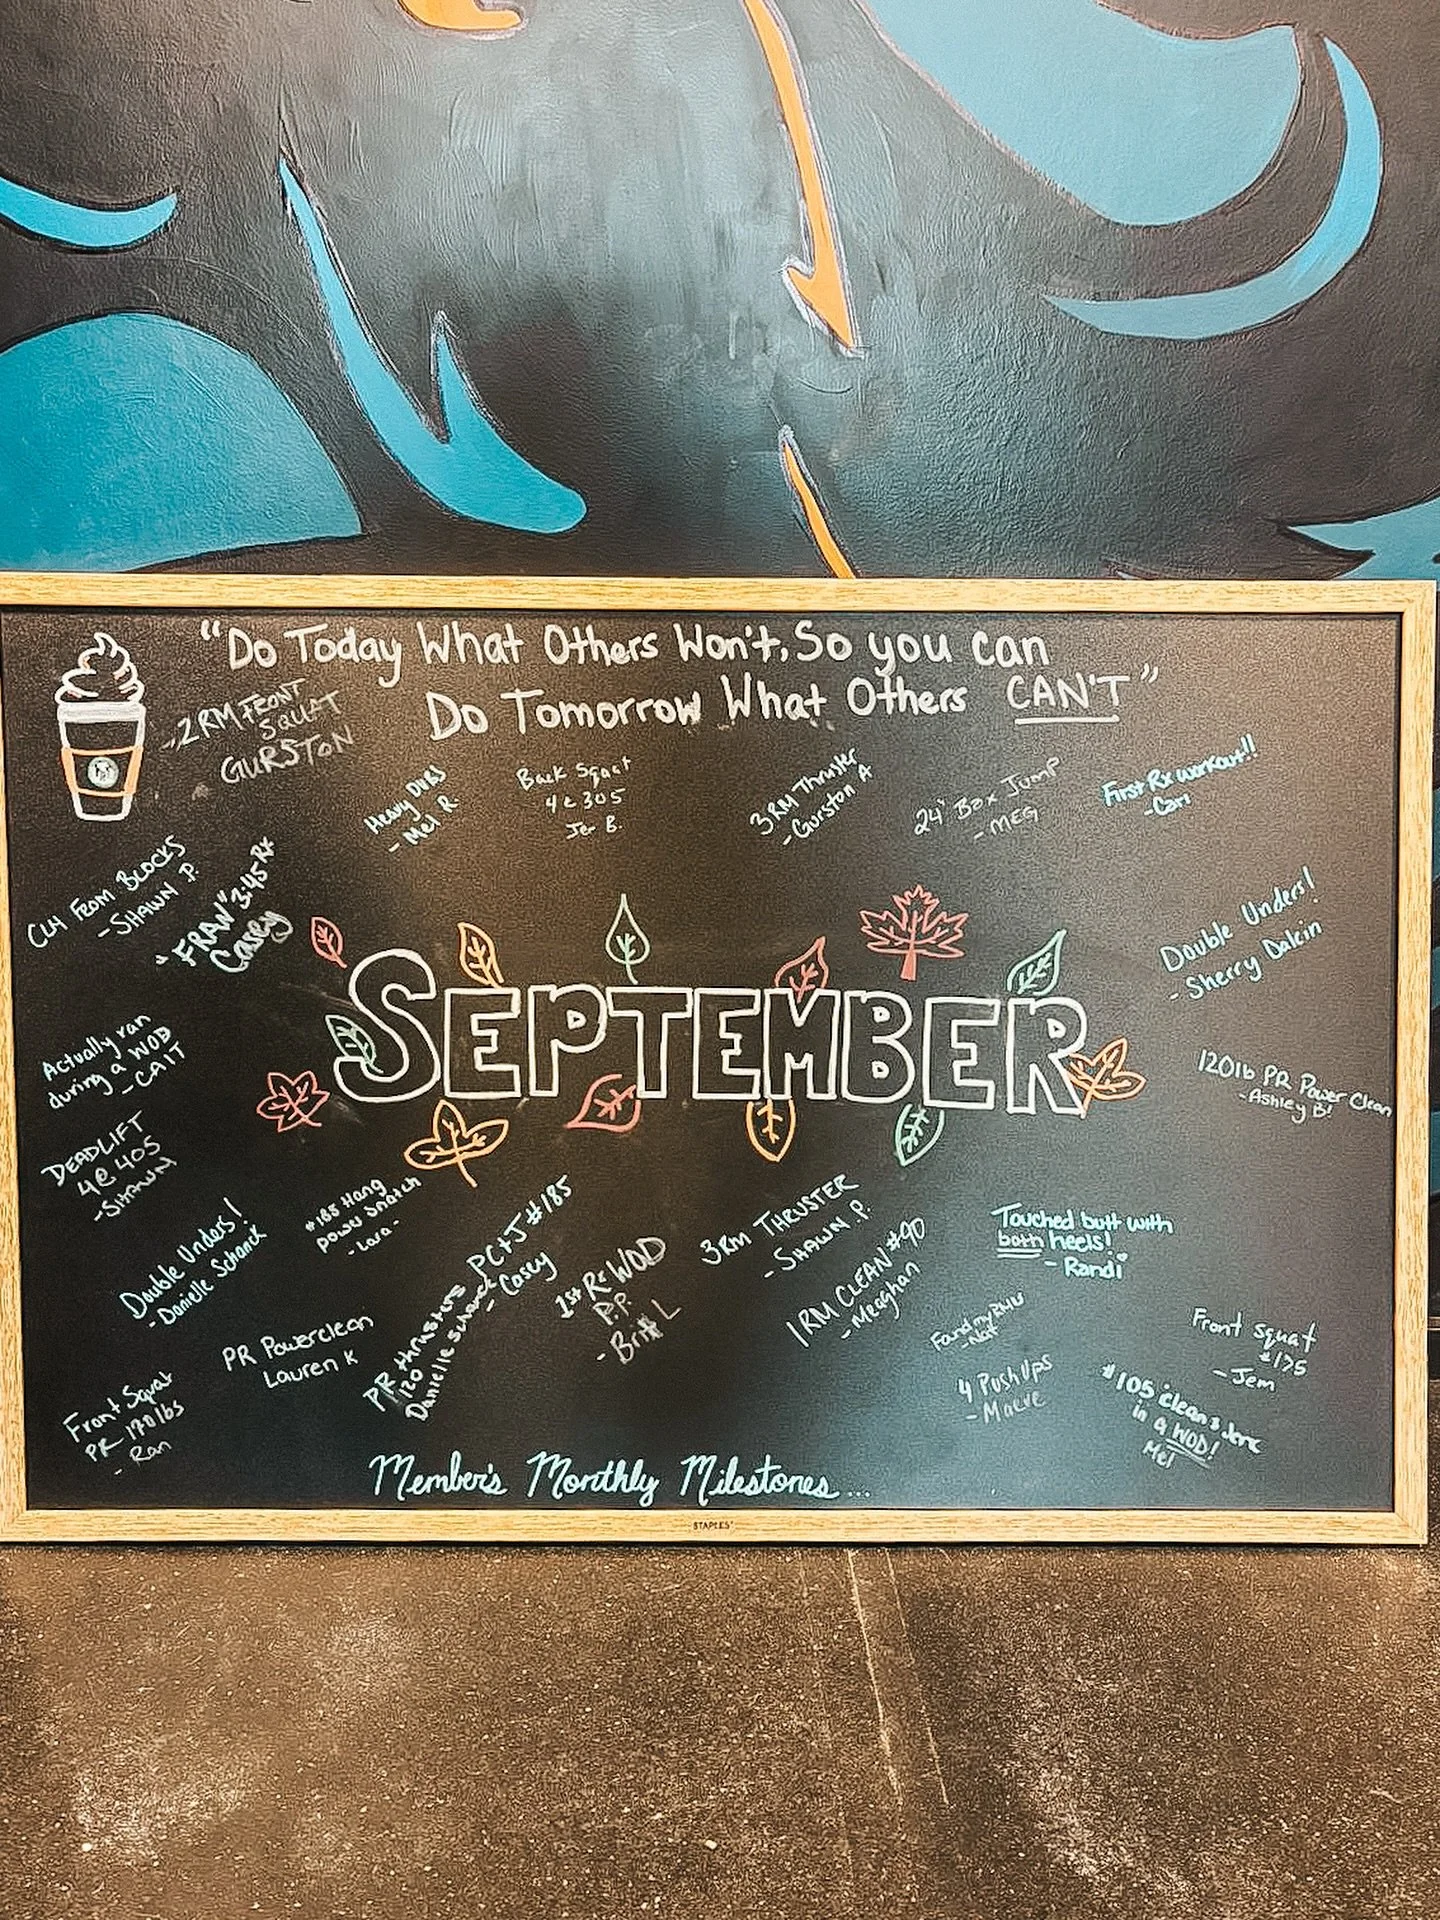 "Do Today What Others Won't, So you can
Do Tomorrow What Others CAN'T"
2RM FRONT
SQUAT
GURSTON
Heavy Dubs
- Mel R.
Back Squat
4@305
Jer B.
3RM Thruster
- Gurston A
24" Box Jump
- MEG
First Rx workout!!
- Cari
CLN FROM BLOCKS
- SHAWN P.
"FRAN" 3:45 Rx
Casey
Double Unders!
- Sherry Dalcin
SEPTEMBER
Actually ran
during a WOD
- CAIT
120lb PR Power Clean
- Ashley B!
DEADLIFT
4@405
- SHAWN
Double Unders!
- Danielle Schanck
#185 Hang
power snatch
- Lara -
PC+J #185
- Casey
PR thrusters
120
Danielle Schanck
1st Rx WOD
P.P.
- Britt L
3RM THRUSTER
- SHAWN P.
1RM CLEAN #90
- Meaghan
Touched butt with
both heels!
- Randi
Found my
- Nat
Front squat
#175
- Jem
PR Powerclean
Lauren K
4 Push Ups
- Maeve
#105 clean & Jerk
in a WOD!
Mel
Front Squat
PR 170lbs
- Ran
Member's Monthly Milestones...
STAPLES